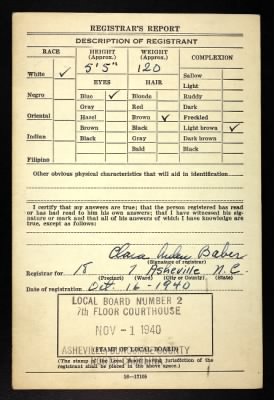 REGISTRAR'S REPORT
DESCRIPTION OF REGISTRANT
RACE HEIGHT (Approx.) WEIGHT (Approx.) COMPLEXION
White ✓ 5' 5" 120 Sallow
EYES HAIR Light
Negro Blue ✓ Blonde Ruddy
Gray Red Dark
Oriental Hazel Brown ✓ Freckled
Brown Black Light brown ✓
Indian Black Gray Dark brown
Bald Black
Filipino
Other obvious physical characteristics that will aid in identification
I certify that my answers are true; that the person registered has read
or has had read to him his own answers; that I have witnessed his sig-
nature or mark and that all of his answers of which I have knowledge are
true, except as follows:
Clara Baber
(Signature of registrar)
Registrar for 18 7 Asheville N. C.
(Precinct) (Ward) (City or County) (State)
Date of registration Oct. 16 - 1940
LOCAL BOARD NUMBER 2
7th FLOOR COURTHOUSE
NOV - 1 1940
ASHEVILLE COUNTY
(STAMP OF LOCAL BOARD)
(The stamp of the Local Board having jurisdiction of the
registrant shall be placed in the above space.)